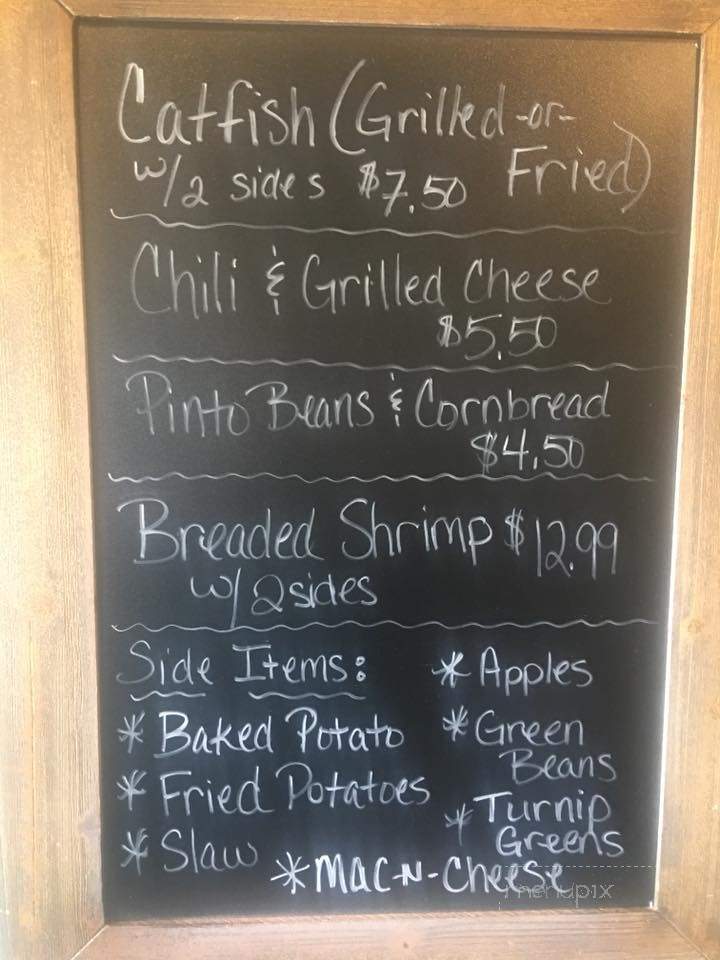 Catfish (Grilled -or-
Fried)
w/2 sides $7.50
Chili & Grilled Cheese
$5.50
Pinto Beans & Cornbread
$4.50
Breaded Shrimp $12.99
w/2 sides
Side Items:
* Baked Potato
* Fried Potatoes
* Slaw
* Apples
* Green
Beans
* Turnip
Greens
* Mac-N-Cheese
menupix